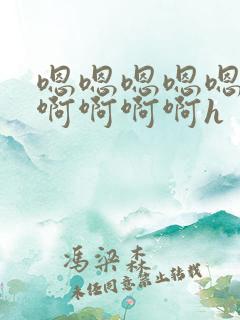 嗯嗯嗯嗯嗯
啊啊啊啊h
冯梁森
未经同意禁止转载